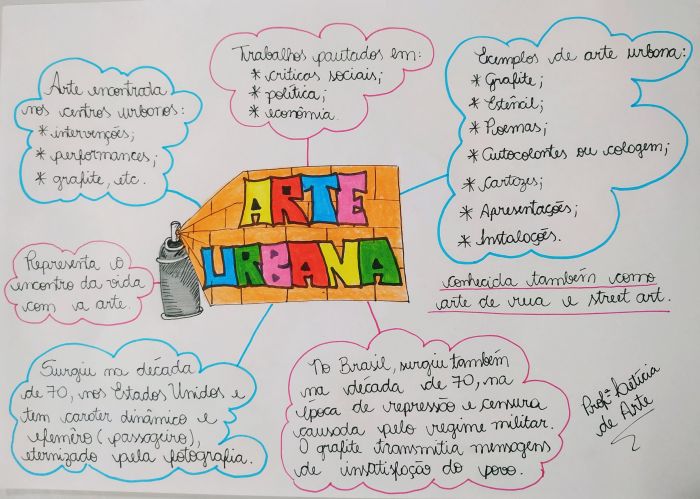 Arte encontrada
nos centros urbanos:
* intervenções;
* performances;
* grafite, etc.
Trabalhos pautados em:
* críticas sociais;
* política;
* econômia.
Exemplos de arte urbana:
* Grafite;
* Estêncil;
* Poemas;
* Autocolantes ou colagem;
* Cartazes;
* Apresentações;
* Instalações.
ARTE
URBANA
conhecida também como
arte de rua e street art.
Representa o
encontro da vida
com a arte.
Surgiu na década
de 70, nos Estados Unidos e
tem caráter dinâmico e
efemêro (passageiro),
eternizado pela fotografia.
No Brasil, surgiu também
na década de 70, na
época de repressão e censura
causada pelo regime militar.
O grafite transmitia mensagens
de insatisfação do povo.
Profª Letícia
de Arte